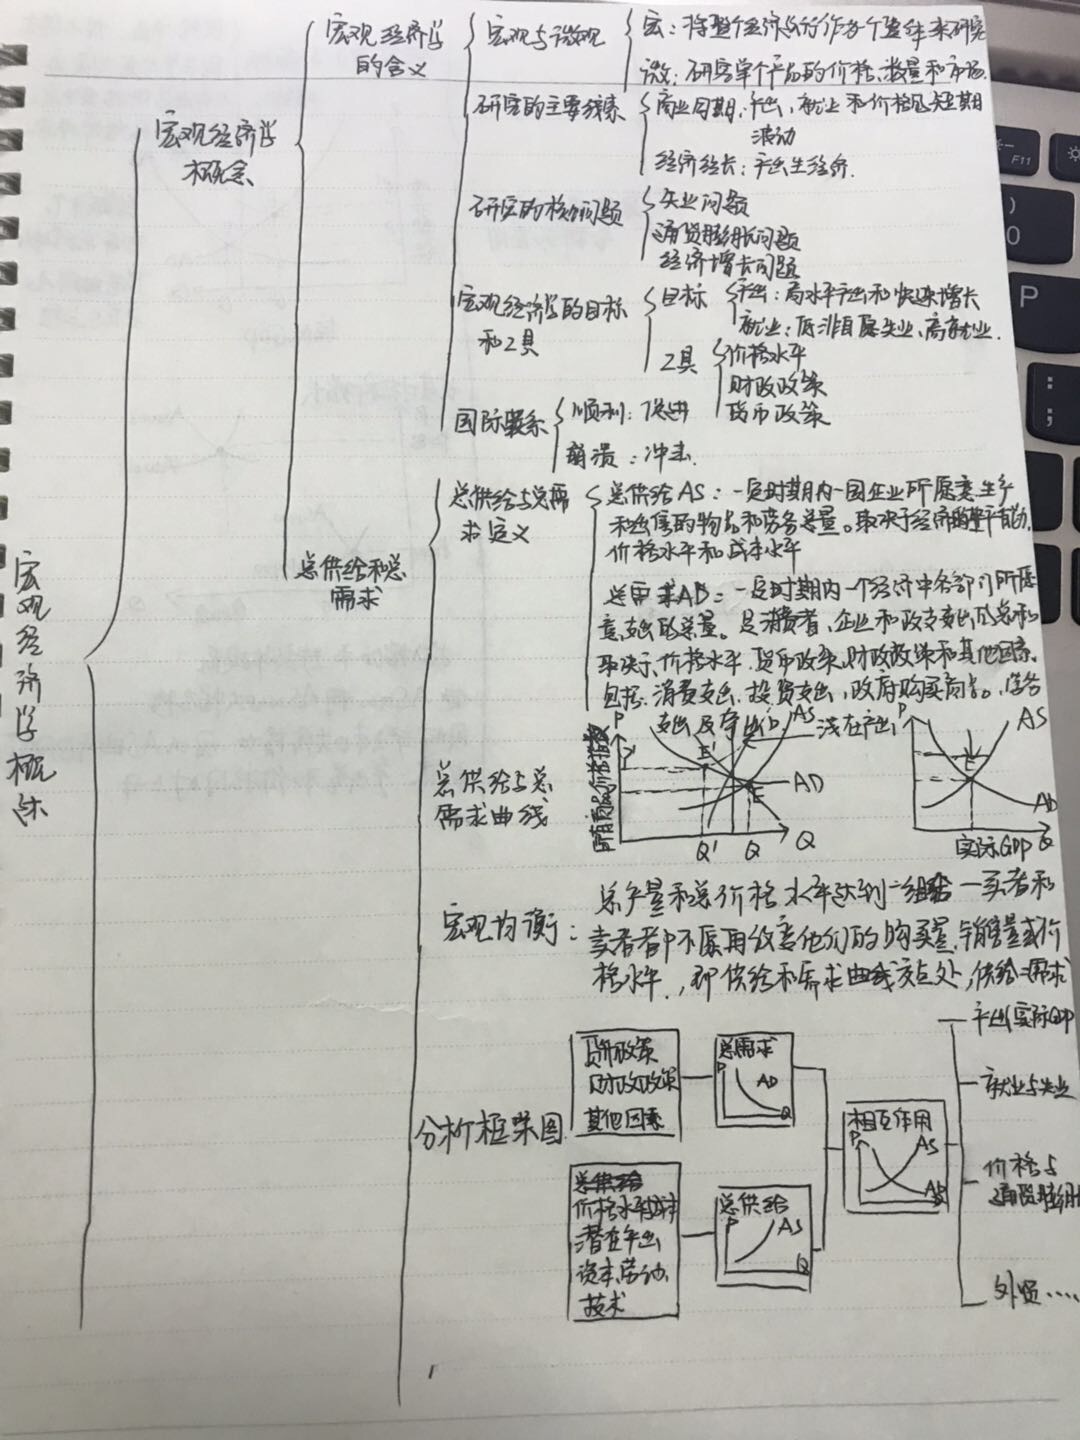 宏观经济学概述
宏观经济学
概念
宏观经济学
的含义
宏观与微观
宏：将整个经济运行作为一个整体来研究
微：研究单个产品的价格、数量和市场.
研究的主要
商业周期：产出、就业和价格的短期
波动
经济
研究的核心问题
失业问题
通货膨胀问题
经济增长问题
宏观经济学的目标
和工具
目标
产出：高水平产出和快速增长
就业：低非自愿失业、高就业.
工具
价格水平
财政政策
货币政策
国际联系
顺利：促进
崩溃：冲击.
总供给和总
需求
总供给与总需
求定义
总供给AS：一定时期内一国企业所愿意生产
和出售的物品和劳务总量。取决于经济的
价格水平和成本水平
总需求AD：一定时期内一个经济中各部门所愿
意支出的总量。是消费者、企业和政支出的总和
取决于、价格水平、货币政策、财政政策和其他因素、
包括：消费支出、投资支出、政府购买商品。
支出及净出口
总供给与总
需求曲线
P
AS
潜在产出
E'
E
AD
Q' Q Q
P
AS
E
AD
实际GDP Q
宏观均衡：
总产量和总价格水平达到一组合一买者和
卖者者都不愿再改变他们的购买量、销售量或价
格水平.，即供给和需求曲线交点处，供给=需求
分析框架图
货币政策
财政政策
其他因素
总需求
P
AD
Q
总供给
价格水平成本
潜在产出
资本、劳动、
技术
总供给
P
AS
Q
相互作用
P
AS
AD
产出实际GDP
就业与失业
价格与
通货膨胀
外贸……
1
F11
)
0
P
:
;